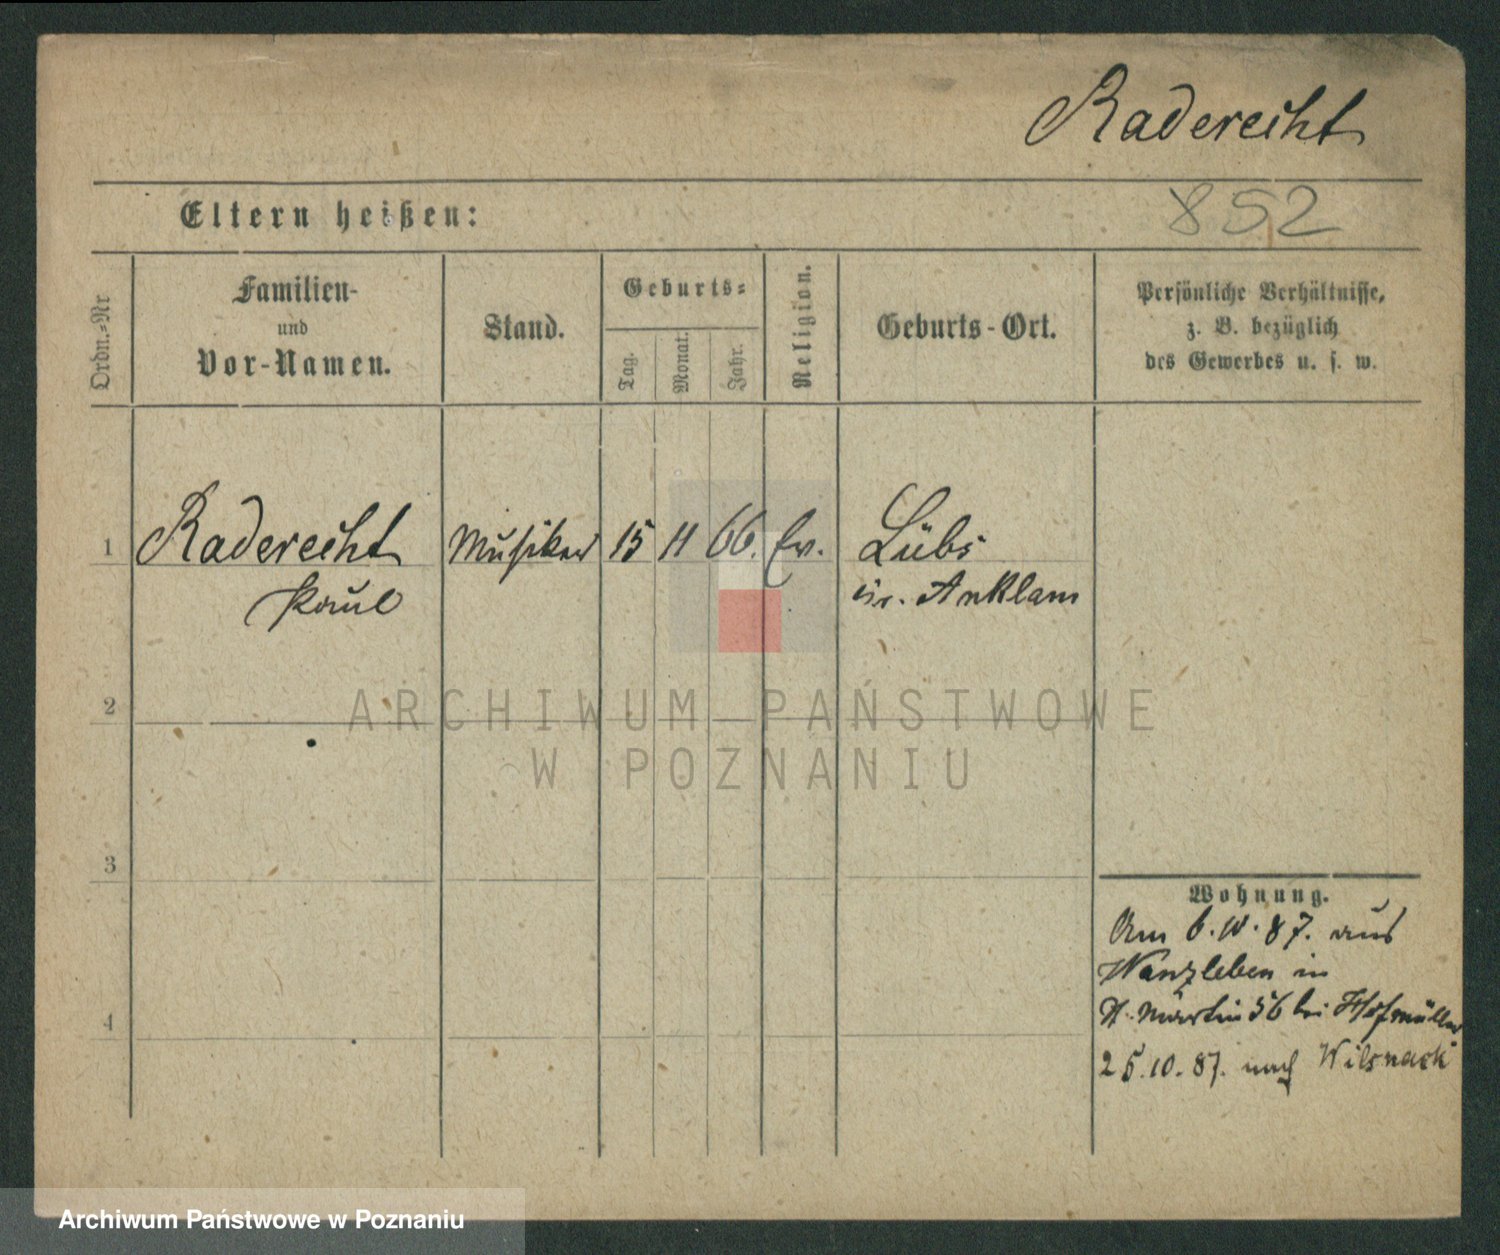 Raderecht
852
Eltern heißen:
Ordn.=Nr
Familien-
und
Vor-Namen.
Stand.
Geburts=
Tag.
Monat.
Jahr.
Religion.
Geburts-Ort.
Persönliche Verhältnisse,
z. B. bezüglich
des Gewerbes u. s. w.
1 Raderecht Musiker 15 11 66. Ev. Lübs
Paul Kr. Anklam
2
3
4
Wohnung.
Am 6. 10. 87. aus
Wanzleben in
St. Martin 56 bei Hofmüller
25.10.87. nach Wilsnack
ARCHIWUM PAŃSTWOWE
W POZNANIU
Archiwum Państwowe w Poznaniu